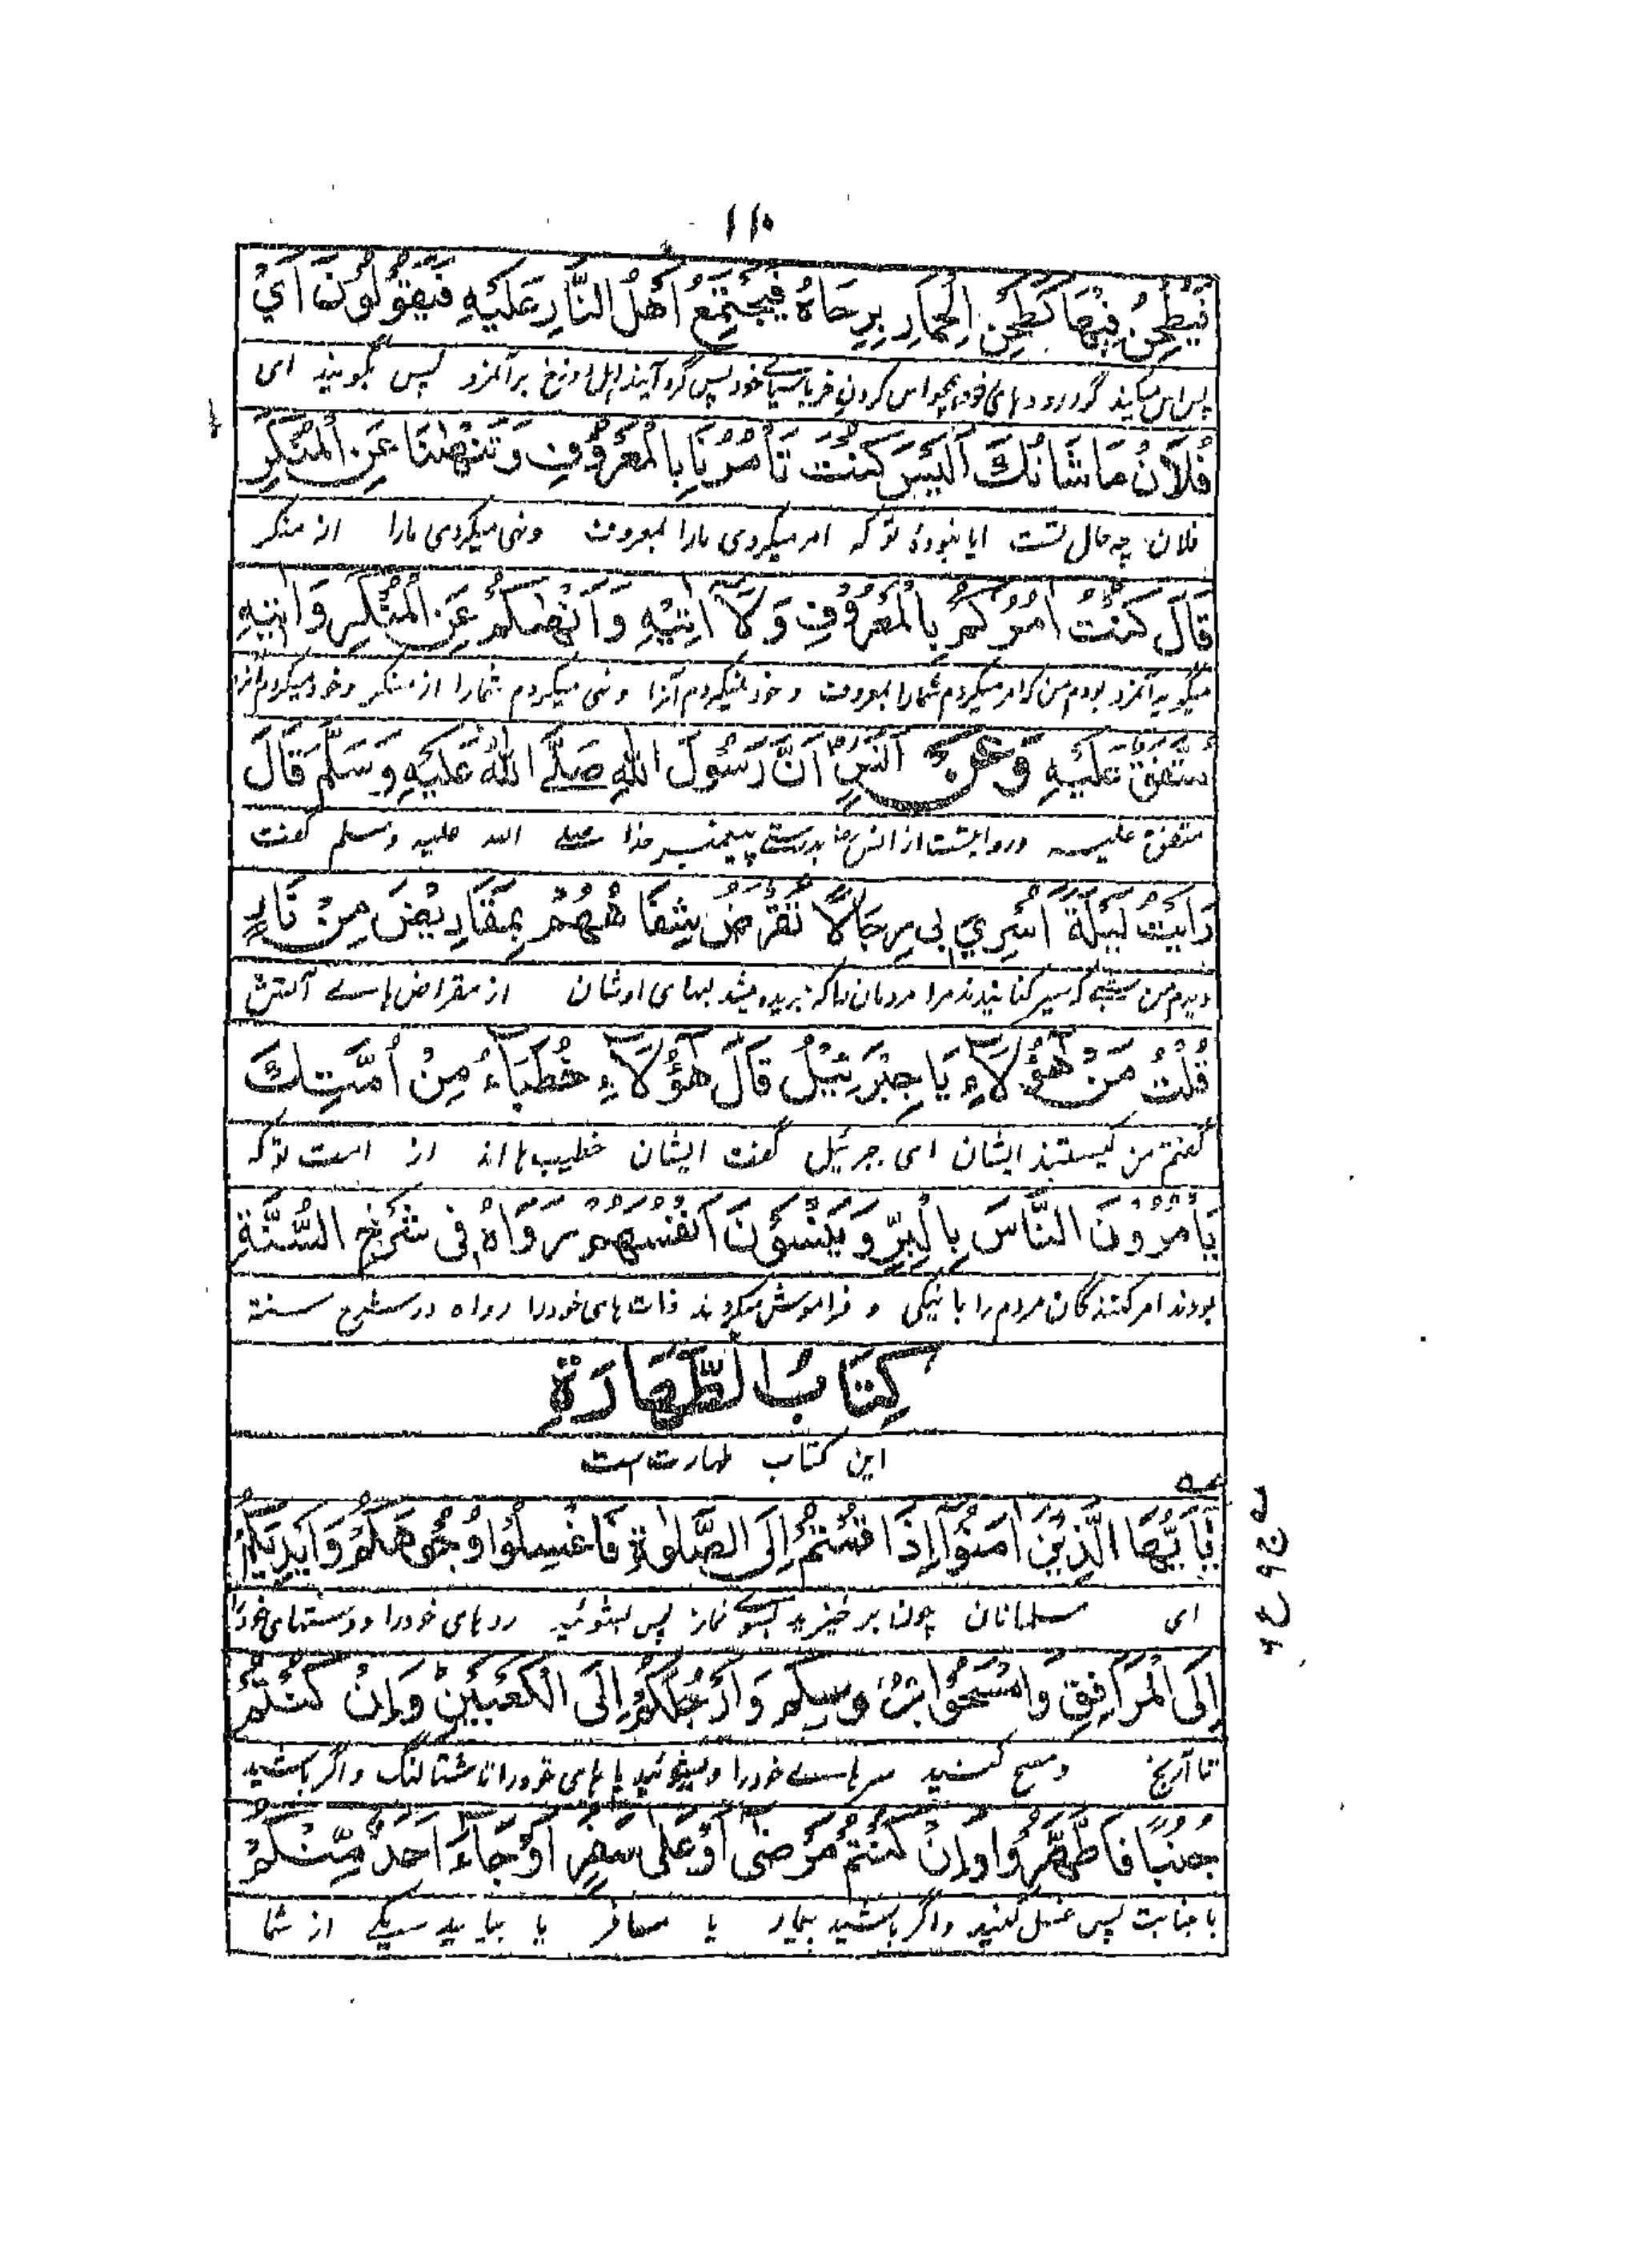 ۱۱۰
فَيَطْحَنُ فِيْهَا كَطَحْنِ الْحِمَارِ بِرِحَاهُ فَيَجْتَمِعُ اَهْلُ النَّارِ عَلَيْهِ فَيَقُوْلُوْنَ اَيْ
خود پس گرد آیند اهل دوزخ بر آنمرد پس بگویند ای
فُلَانُ مَا شَانُكَ اَلَيْسَ كُنْتَ تَأْمُرُنَا بِالْمَعْرُوْفِ وَتَنْهٰىنَا عَنِ الْمُنْكَرِ
فلان چه حال تست ایا نبودهٔ تو که امر میکردی مارا بمعروف ونهی میکردی مارا از منکر
قَالَ كُنْتُ اٰمُرُكُمْ بِالْمَعْرُوْفِ وَلَآ اٰتِيْهِ وَاَنْهٰىكُمْ عَنِ الْمُنْكَرِ وَاٰتِيْهِ
میگوید آنمرد بودم من که امر میکردم شمارا بمعروف و خود نمیکردم آنرا و نهی میکردم شمارا از منکر و خود میکردم آنرا
مُتَّفَقٌ عَلَيْهِ وَعَنْ اَنَسٍ اَنَّ رَسُوْلَ اللّٰهِ صَلَّے اللّٰهُ عَلَيْهِ وَسَلَّمَ قَالَ
متفق علیه وروایتست از انس رض بدرستے پیغمبر خدا صلے الله علیه وسلم گفت
رَاَيْتُ لَيْلَةَ اُسْرِيَ بِي رِجَالًا تُقْرَضُ شِفَاهُهُمْ بِمَقَارِيْضَ مِنْ نَارٍ
دیدم من شبے که سیر کنانیدند مرا مردمان را که بریده میشد لبهای اوشان از مقراض هاے آتش
قُلْتُ مَنْ هٰٓؤُلَآءِ يَا جِبْرَئِيْلُ قَالَ هٰٓؤُلَآءِ خُطَبَاءُ مِنْ اُمَّتِكَ
گفتم من کیستند ایشان ای جبرئیل گفت ایشان خطیب ها اند از امت تو که
يَأْمُرُوْنَ النَّاسَ بِالْبِرِّ وَيَنْسَوْنَ اَنْفُسَهُمْ رَوَاهُ فِي شَرْحِ السُّنَّةِ
بودند امر کنندگان مردم را با نیکی و فراموش میکردند ذات های خودرا رواه در شرح سنة
كِتَابُ الطَّهَارَةِ
این کتاب طهارت است
يٰٓاَيُّهَا الَّذِيْنَ اٰمَنُوْٓا اِذَا قُمْتُمْ اِلَى الصَّلٰوةِ فَاغْسِلُوْا وُجُوْهَكُمْ وَاَيْدِيَكُمْ
ای مسلمانان چون بر خیزید بسوے نماز پس بشوئید روهای خودرا ودستهای خودرا
اِلَى الْمَرَافِقِ وَامْسَحُوْا بِرُءُوْسِكُمْ وَاَرْجُلَكُمْ اِلَى الْكَعْبَيْنِ وَاِنْ كُنْتُمْ
تا آرنج ومسح کنید سرهاے خودرا وبشوئید پا های خودرا تا شتالنگ واگر باشید
جُنُبًا فَاطَّهَّرُوْا وَاِنْ كُنْتُمْ مَّرْضٰى اَوْ عَلٰى سَفَرٍ اَوْ جَاءَ اَحَدٌ مِّنْكُمْ
با جنابت پس غسل کنید واگر باشید بیمار یا مسافر یا بیاید یکے از شما